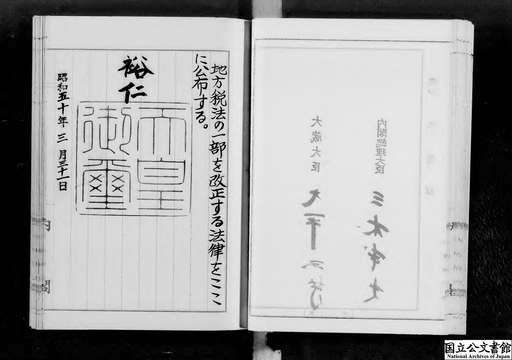 地方税法の一部を改正する法律をここ
に公布する。
裕仁
天皇
御璽
昭和五十年三月三十一日
内閣
内閣総理大臣
三木武夫
大蔵大臣
大平正芳
国立公文書館
National Archives of Japan